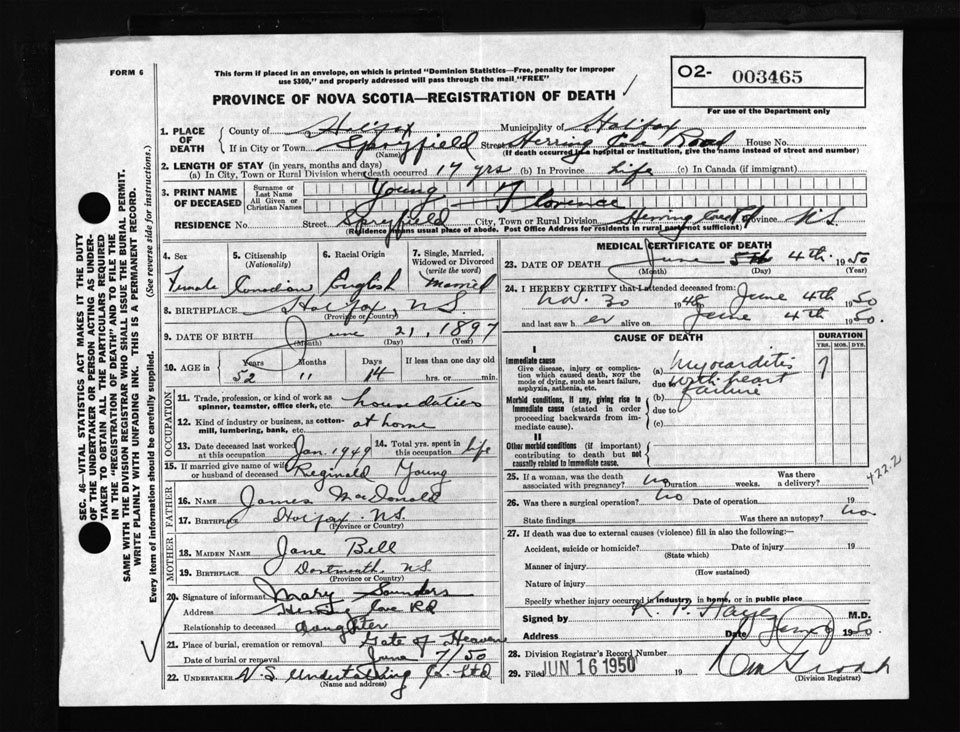 FORM 6
This form if placed in an envelope, on which is printed "Dominion Statistics—Free, penalty for improper
use $300," and properly addressed will pass through the mail "FREE"
O2- 003465
For use of the Department only
PROVINCE OF NOVA SCOTIA—REGISTRATION OF DEATH
1. PLACE OF DEATH { County of Halifax Municipality of Halifax
If in City or Town Spryfield (Name) Street Herring Cove Road House No.
(If death occurred in a hospital or institution, give the name instead of street and number)
2. LENGTH OF STAY (in years, months and days)
(a) In City, Town or Rural Division where death occurred 17 yrs (b) In Province Life (c) In Canada (if immigrant)
3. PRINT NAME OF DECEASED { Surname or Last Name Young
All Given or Christian Names Florence
RESIDENCE No. Street Spryfield City, Town or Rural Division Herring Cove Rd Province N.S.
(Residence means usual place of abode. Post Office Address for residents in rural parts not sufficient)
4. Sex 5. Citizenship (Nationality) 6. Racial Origin 7. Single, Married, Widowed or Divorced (write the word)
Female Canadian English Married
8. BIRTHPLACE Halifax, N.S.
(Province or Country)
9. DATE OF BIRTH June 21, 1897
(Month) (Day) (Year)
10. AGE in { Years Months Days If less than one day old
52 11 14 hrs. or min.
OCCUPATION
11. Trade, profession, or kind of work as spinner, teamster, office clerk, etc. house duties
12. Kind of industry or business, as cotton-mill, lumbering, bank, etc. at home
13. Date deceased last worked at this occupation Jan. 1949 14. Total yrs. spent in this occupation life
15. If married give name of wife or husband of deceased Reginald Young
FATHER
16. NAME James MacDonald
17. BIRTHPLACE Halifax N.S.
(Province or Country)
MOTHER
18. MAIDEN NAME Jane Bell
19. BIRTHPLACE Dartmouth N.S.
(Province or Country)
20. Signature of informant Mary Saunders
Address Herring Cove Rd
Relationship to deceased daughter
21. Place of burial, cremation or removal Gate of Heaven
Date of burial or removal June 7/50
22. UNDERTAKER N.S. Undertaking Co. Ltd
(Name and address)
MEDICAL CERTIFICATE OF DEATH
23. DATE OF DEATH June 5th 4th. 1950
(Month) (Day) (Year)
24. I HEREBY CERTIFY that I attended deceased from:
Nov. 30 1948 to June 4th 1950
and last saw h er alive on June 4th 1950.
CAUSE OF DEATH
DURATION
YRS. MOS. DYS.
I
Immediate cause
Give disease, injury or complication which caused death, NOT the mode of dying, such as heart failure, asphyxia, asthenia, etc.
(a) Myocarditis
due to with heart
failure
Morbid conditions, if any, giving rise to immediate cause (stated in order proceeding backwards from immediate cause).
(b)
due to
(c)
II
Other morbid conditions (if important) contributing to death but not causally related to immediate cause.
422.2
25. If a woman, was the death associated with pregnancy? no Duration weeks. Was there a delivery?
26. Was there a surgical operation? no Date of operation 19
State findings Was there an autopsy? no
27. If death was due to external causes (violence) fill in also the following:
Accident, suicide or homicide? Date of injury 19
(State which)
Manner of injury
(How sustained)
Nature of injury
Specify whether injury occurred in industry, in home, or in public place
Signed by M.D.
Address Date 1950.
28. Division Registrar's Record Number
29. Filed JUN 16 1950 19
(Division Registrar)
SEC. 46—VITAL STATISTICS ACT MAKES IT THE DUTY
OF THE UNDERTAKER OR PERSON ACTING AS UNDER-
TAKER TO OBTAIN ALL THE PARTICULARS REQUIRED
IN THE "REGISTRATION OF DEATH" AND TO FILE THE
SAME WITH THE DIVISION REGISTRAR WHO SHALL ISSUE THE BURIAL PERMIT.
WRITE PLAINLY WITH UNFADING INK. THIS IS A PERMANENT RECORD.
Every item of information should be carefully supplied. (See reverse side for instructions.)